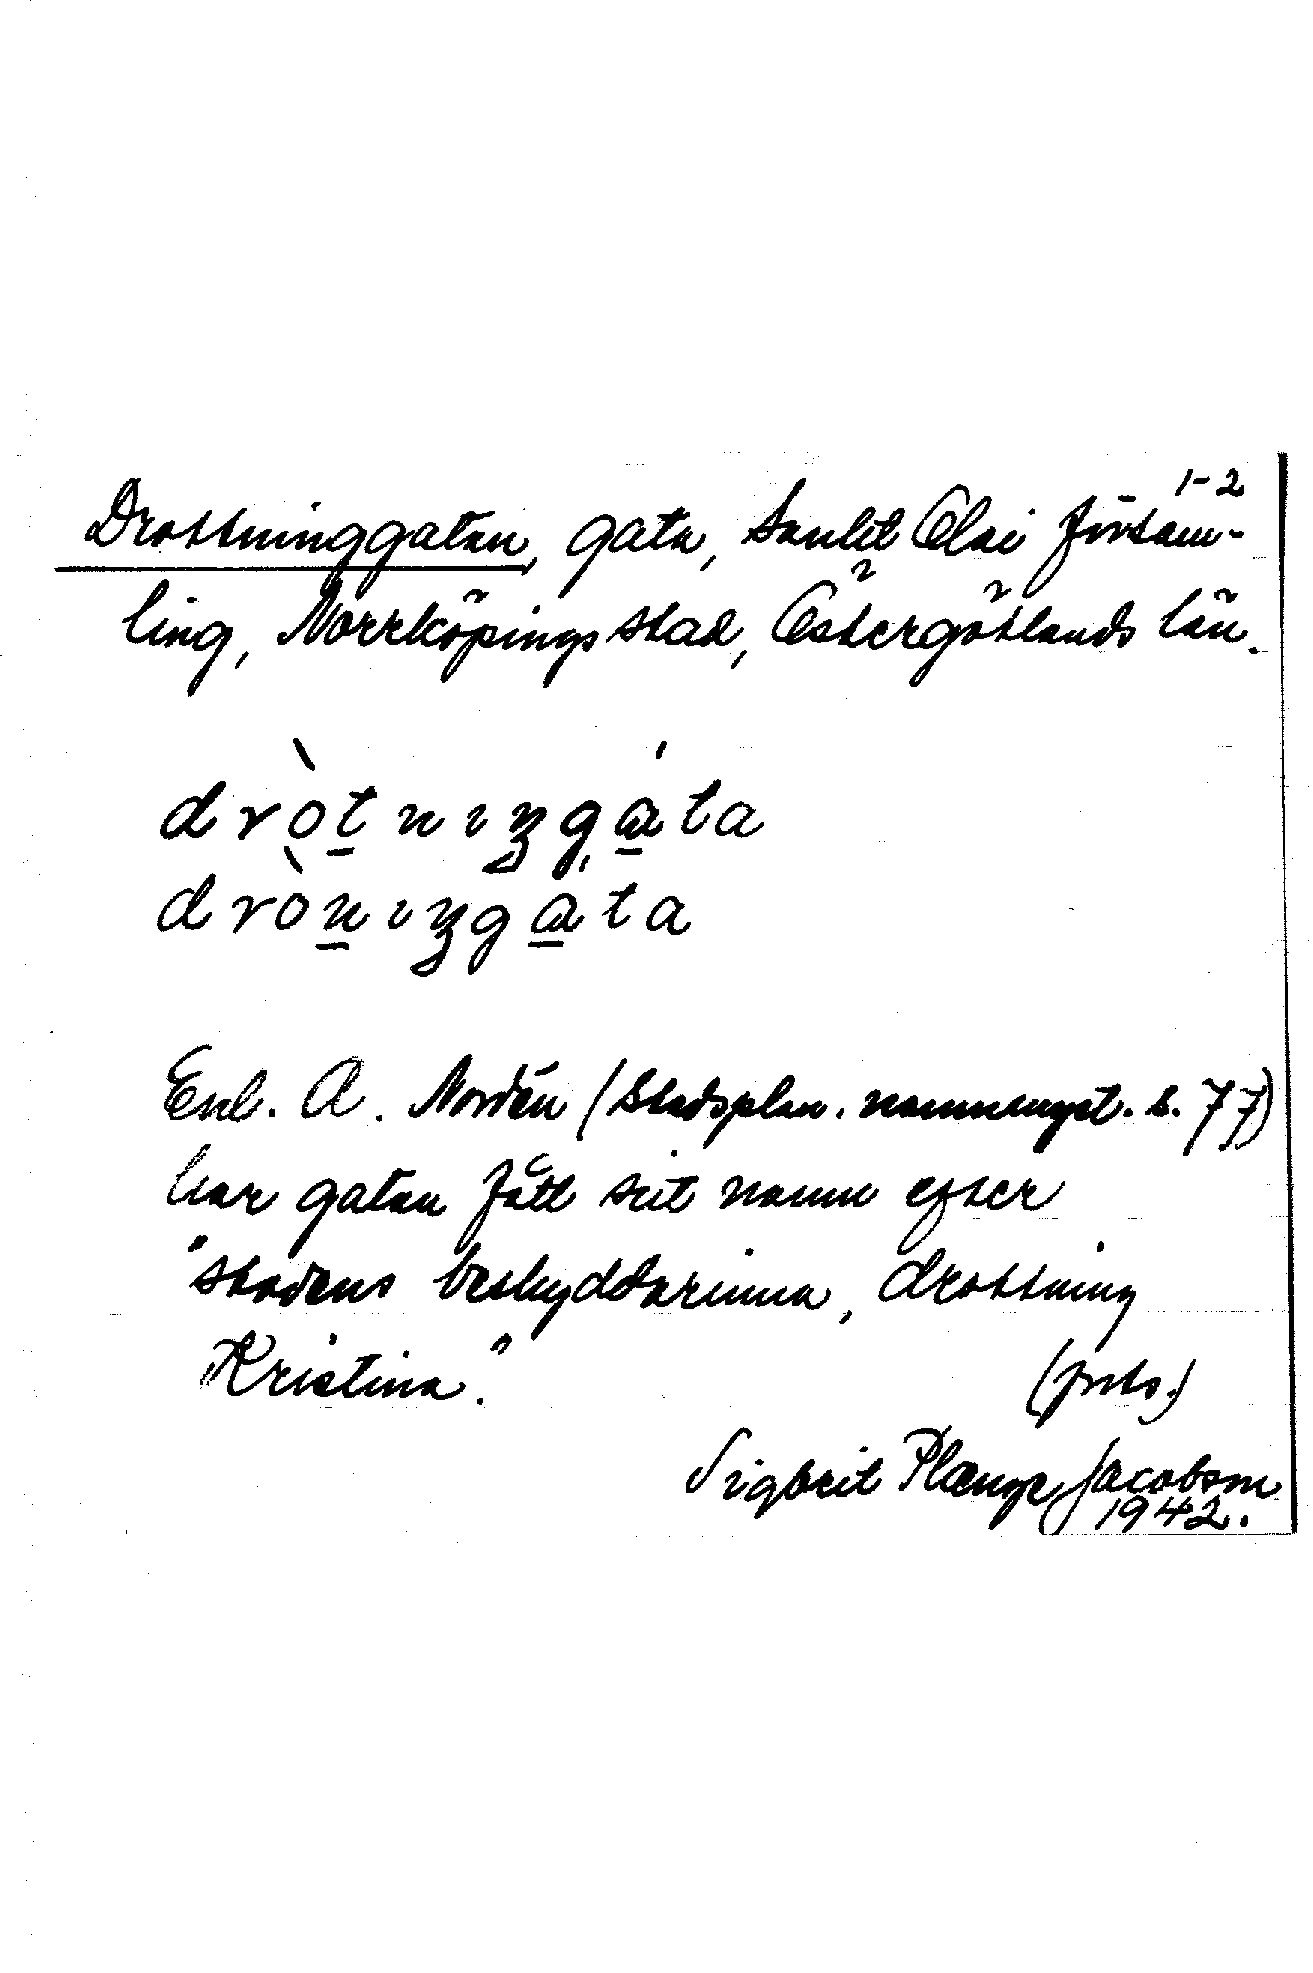 1-2
Drottninggatan, gata, Sankt Olai försam-
ling, Norrköpings stad, Östergötlands län.
dròt̲nıŋgá̲ta
dròn̲ıŋgá̲ta
Enl. A. Nordén (Stadsplan. namnengst. s. 77)
har gatan fått sitt namn efter
"stadens beskyddarinna, drottning
Kristina."
(forts.)
Sigbrit Plænge Jacobson
1942.